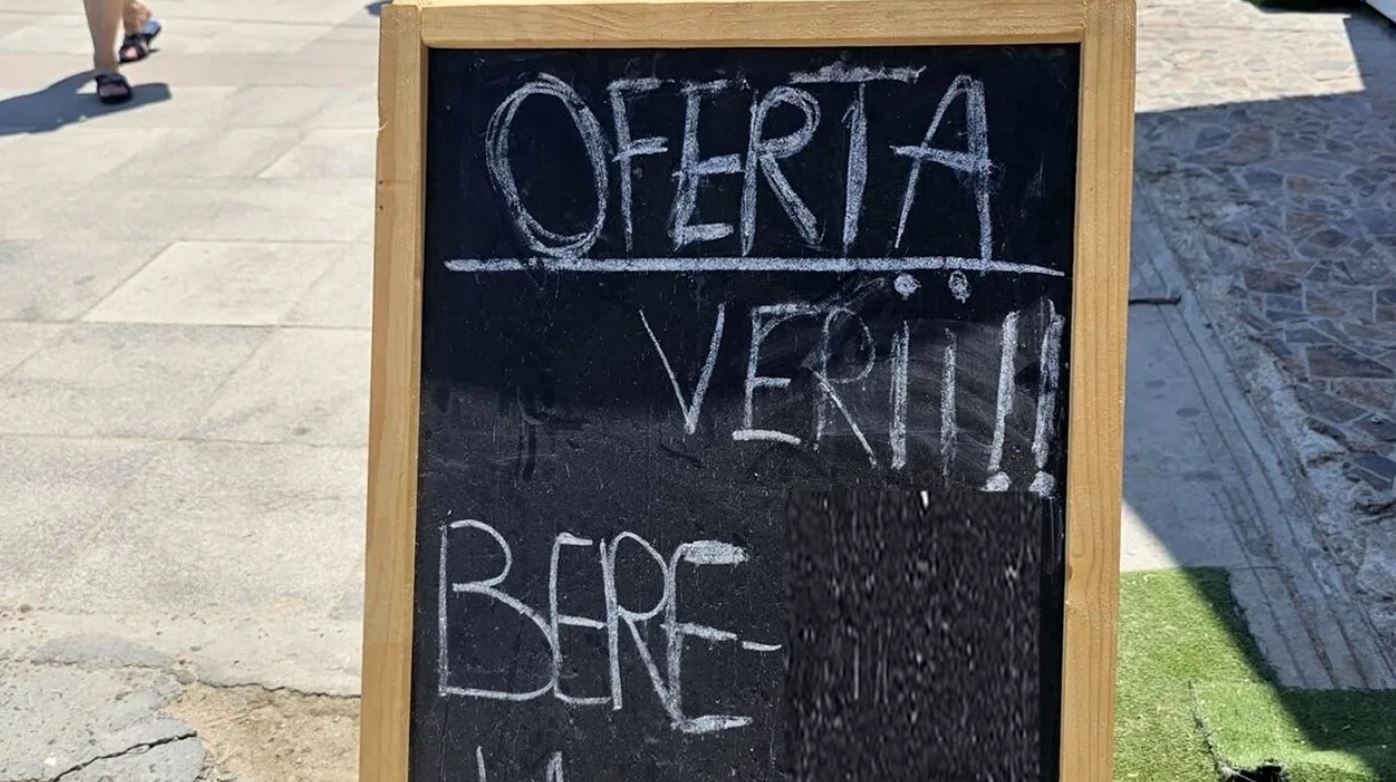 OFERTA
VERII!!
BERE-